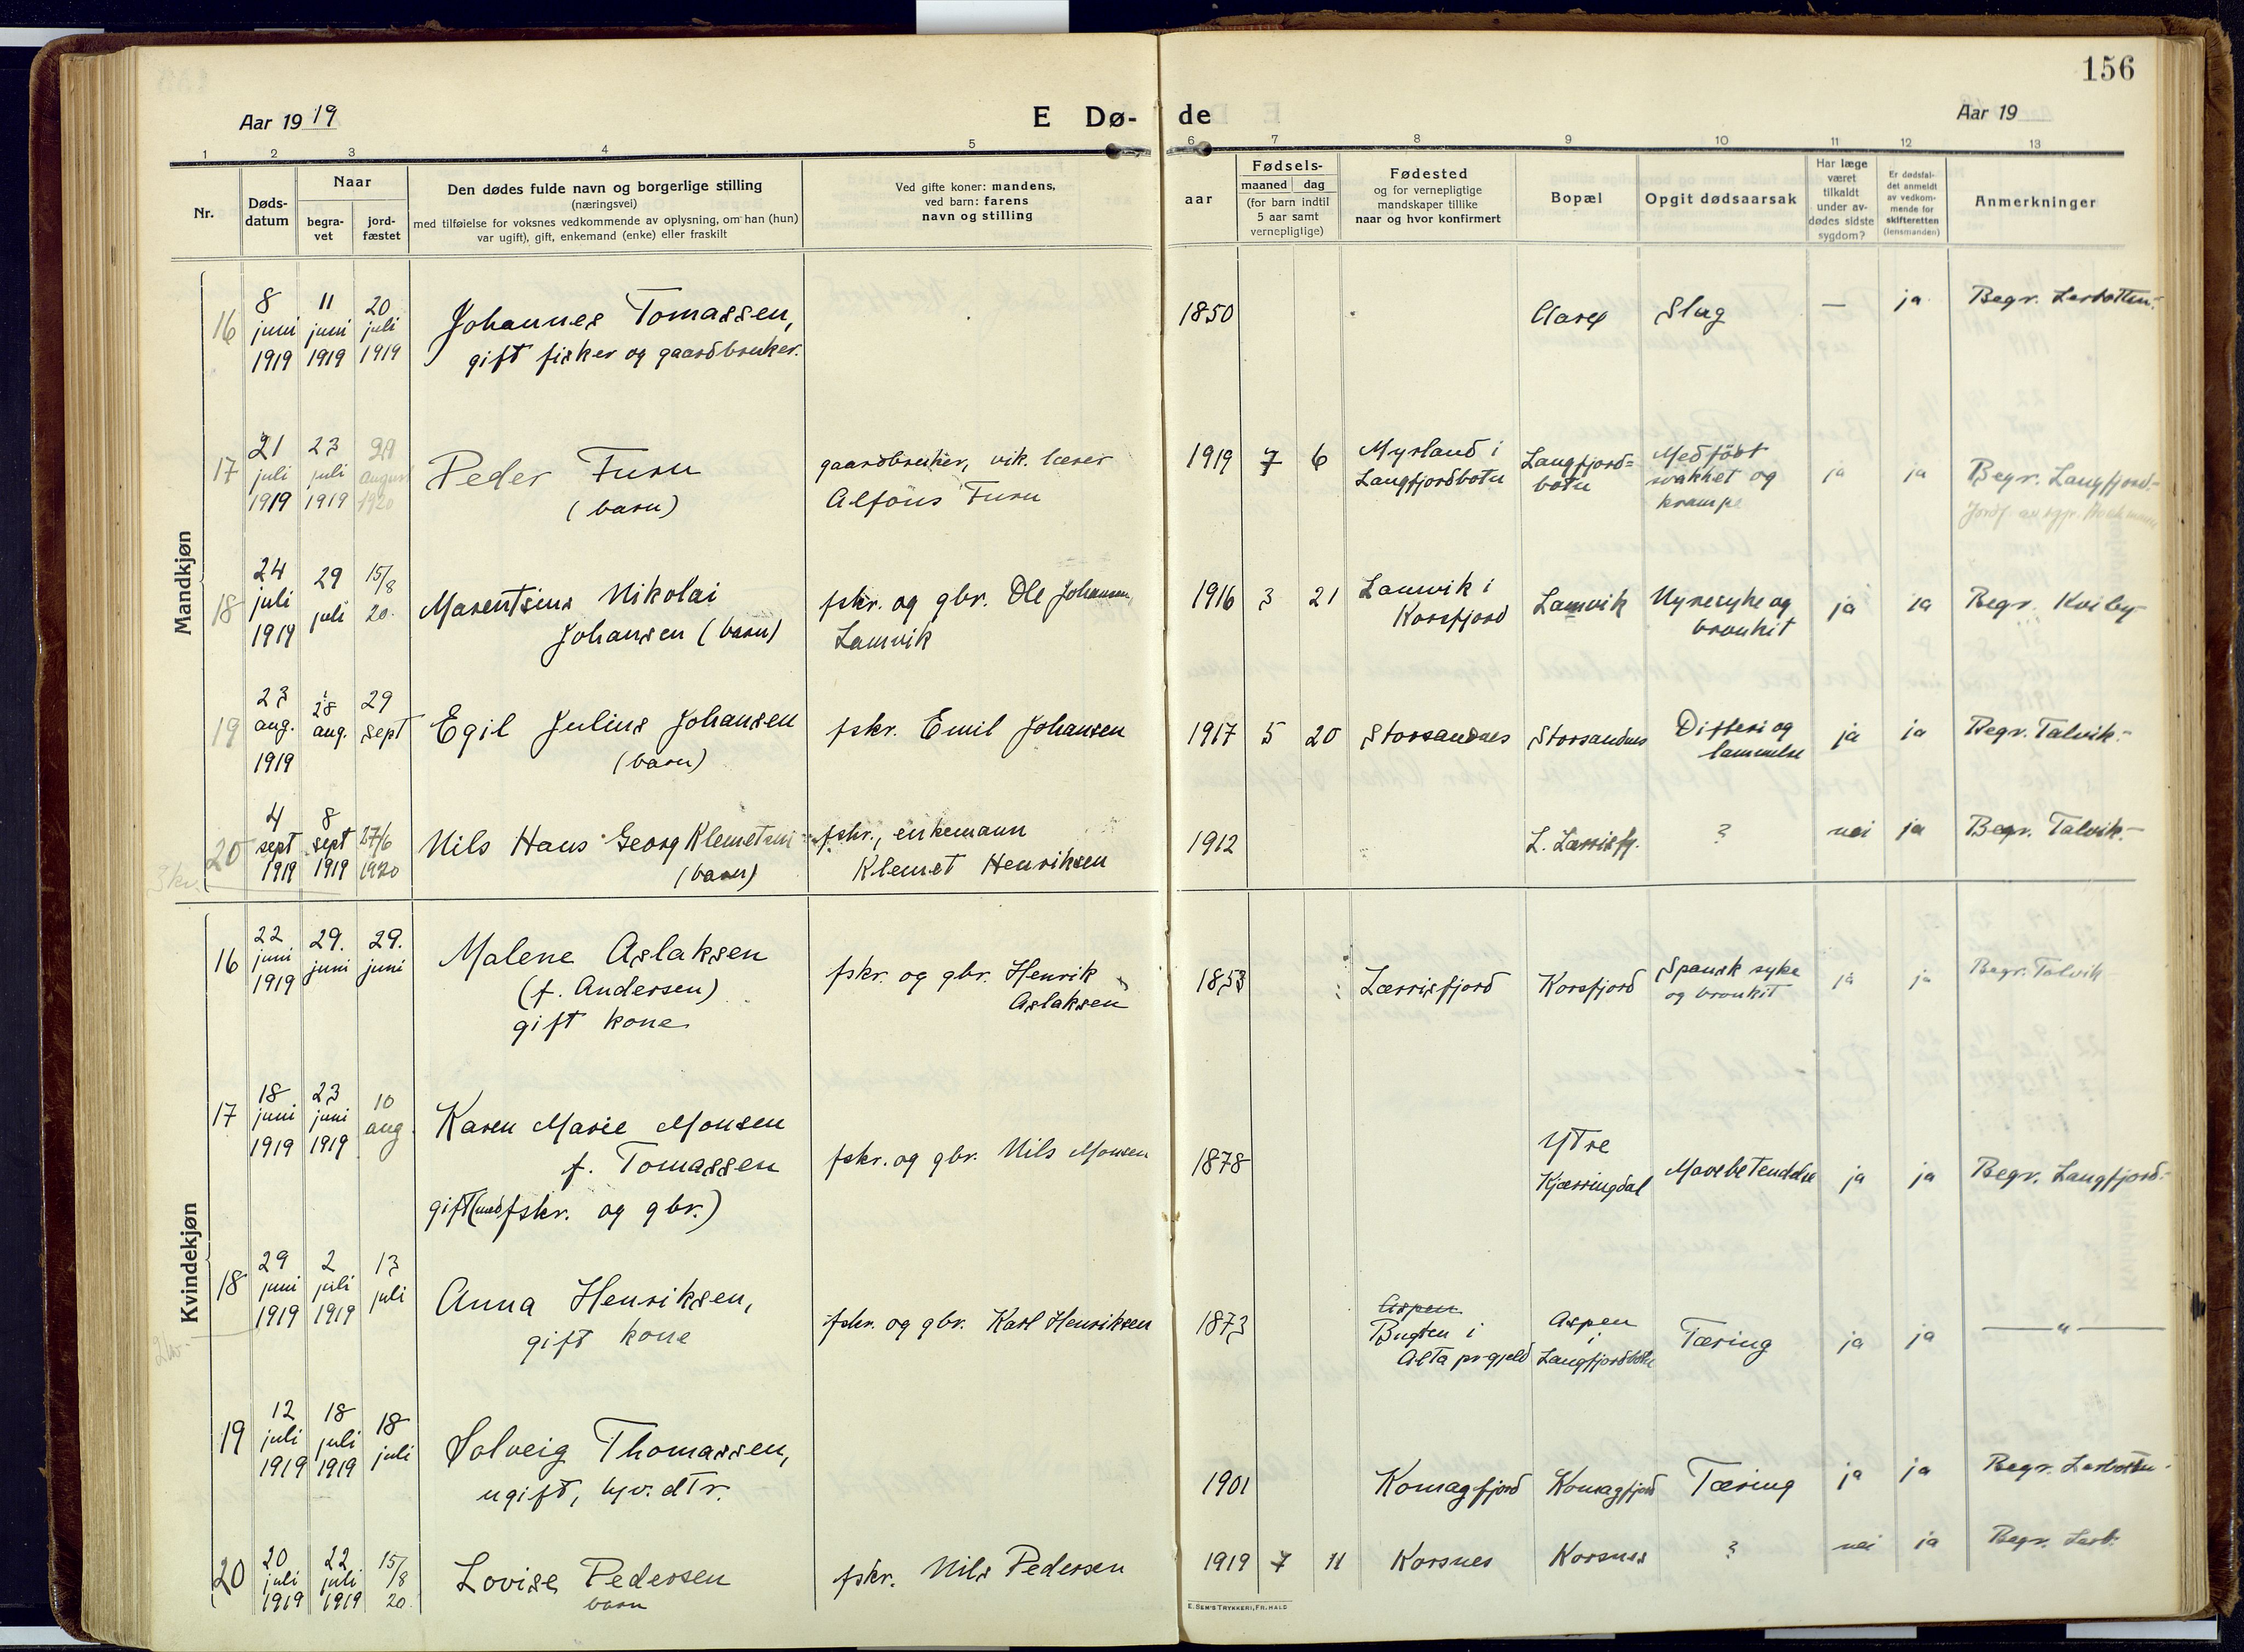 156
Aar 1919
E Dø-
de
Aar 19
1 2 3 4 5 6 7 8 9 10 11 12 13
Nr.
Døds-
datum
Naar
begra-
vet
jord-
fæstet
Den dødes fulde navn og borgerlige stilling
(næringsvei)
med tilføielse for voksnes vedkommende av oplysning, om han (hun)
var ugift), gift, enkemand (enke) eller fraskilt
Ved gifte koner: mandens,
ved barn: farens
navn og stilling
aar
Fødsels-
maaned dag
(for barn indtil
5 aar samt
vernepligtige)
Fødested
og for vernepligtige
mandskaper tillike
naar og hvor konfirmert
Bopæl
Opgit dødsaarsak
Har læge
været
tilkaldt
under av-
dødes sidste
sygdom?
Er dødsfal-
det anmeldt
av vedkom-
mende for
skifteretten
(lensmanden)
Anmerkninger
Mandkjøn
16
8 juni 1919
11 juni 1919
20 juli 1919
Johannes Tomassen,
gift fisker og gaardbruker.
1850
Slag
—
ja
Begr. Lerbotten.-
17
21 juli 1919
23 juli 1919
29 august 1920
Peder Furu
(barn)
gaardbruker, vik. lærer
Alfons Furu
1919 7 6
Myrland i
Langfjordbotn
Langfjord=
botn
Medfödt
svakhet og
krampe
ja
ja
Begr. Langfjord.-
18
24 juli 1919
29 juli
15/8 20.
Marentsius Nikolai
Johansen (barn)
fskr. og gbr. Ole Johansen,
Lamvik
1916 3 21
Lamvik i
Korsfjord
Lamvik
Nyresyke og
bronkit
ja
ja
Begr. Kviby-
19
23 aug. 1919
28 aug.
29 sept
Egil Julius Johansen
(barn)
fskr. Emil Johansen
1917 5 20
Storsandnes
Storsandnes
Difteri og
lammelse
ja
ja
Begr. Talvik.-
20
4 sept 1919
8 sept 1919
27/6 1920
Nils Hans Georg Klemetsen
(barn)
fskr., enkemann
Klemet Henriksen
1912
L. Lærrisfj.
?
nei
ja
Begr. Talvik.-
3 kv.
Kvindekjøn
16
22 juni 1919
29. juni
29. juni
Malene Aslaksen
(f. Andersen)
gift kone
fskr. og gbr. Henrik
Aslaksen
1853
Lærrisfjord
Korsfjord
Spansk syke
og bronkit
ja
ja
Begr. Talvik
17
18 juni 1919
23 juni 1919
10 aug.
Karen Marie Monsen
f. Tomassen
gift (med fskr. og gbr.)
fskr. og gbr. Nils Monsen
1878
Ytre
Kjærringdal
Mavebetendelse
ja
ja
Begr. Langfjord.-
18
29 juni 1919
2 juli 1919
13 juli
Anna Henriksen,
gift kone
fskr. og gbr. Karl Henriksen
1873
Aspen
Bugten i
Alta prgjeld
Aspen
i
Langfjordbotn
Tæring
ja
ja
— " —
19
12 juli 1919
18 juli 1919
18 juli
Solveig Thomassen,
ugift, hjv. dtr.
1901
Komagfjord
Komagfjord
Tæring
ja
ja
Begr. Lerbotten.
20
20 juli 1919
22 juli 1919
15/8 20.
Lovise Pedersen
barn
fskr. Nils Pedersen
1919 7 11
Korsnes
Korsnes
?
nei
ja
Begr. Lerb.
E. SEM'S TRYKKERI, FR. HALD